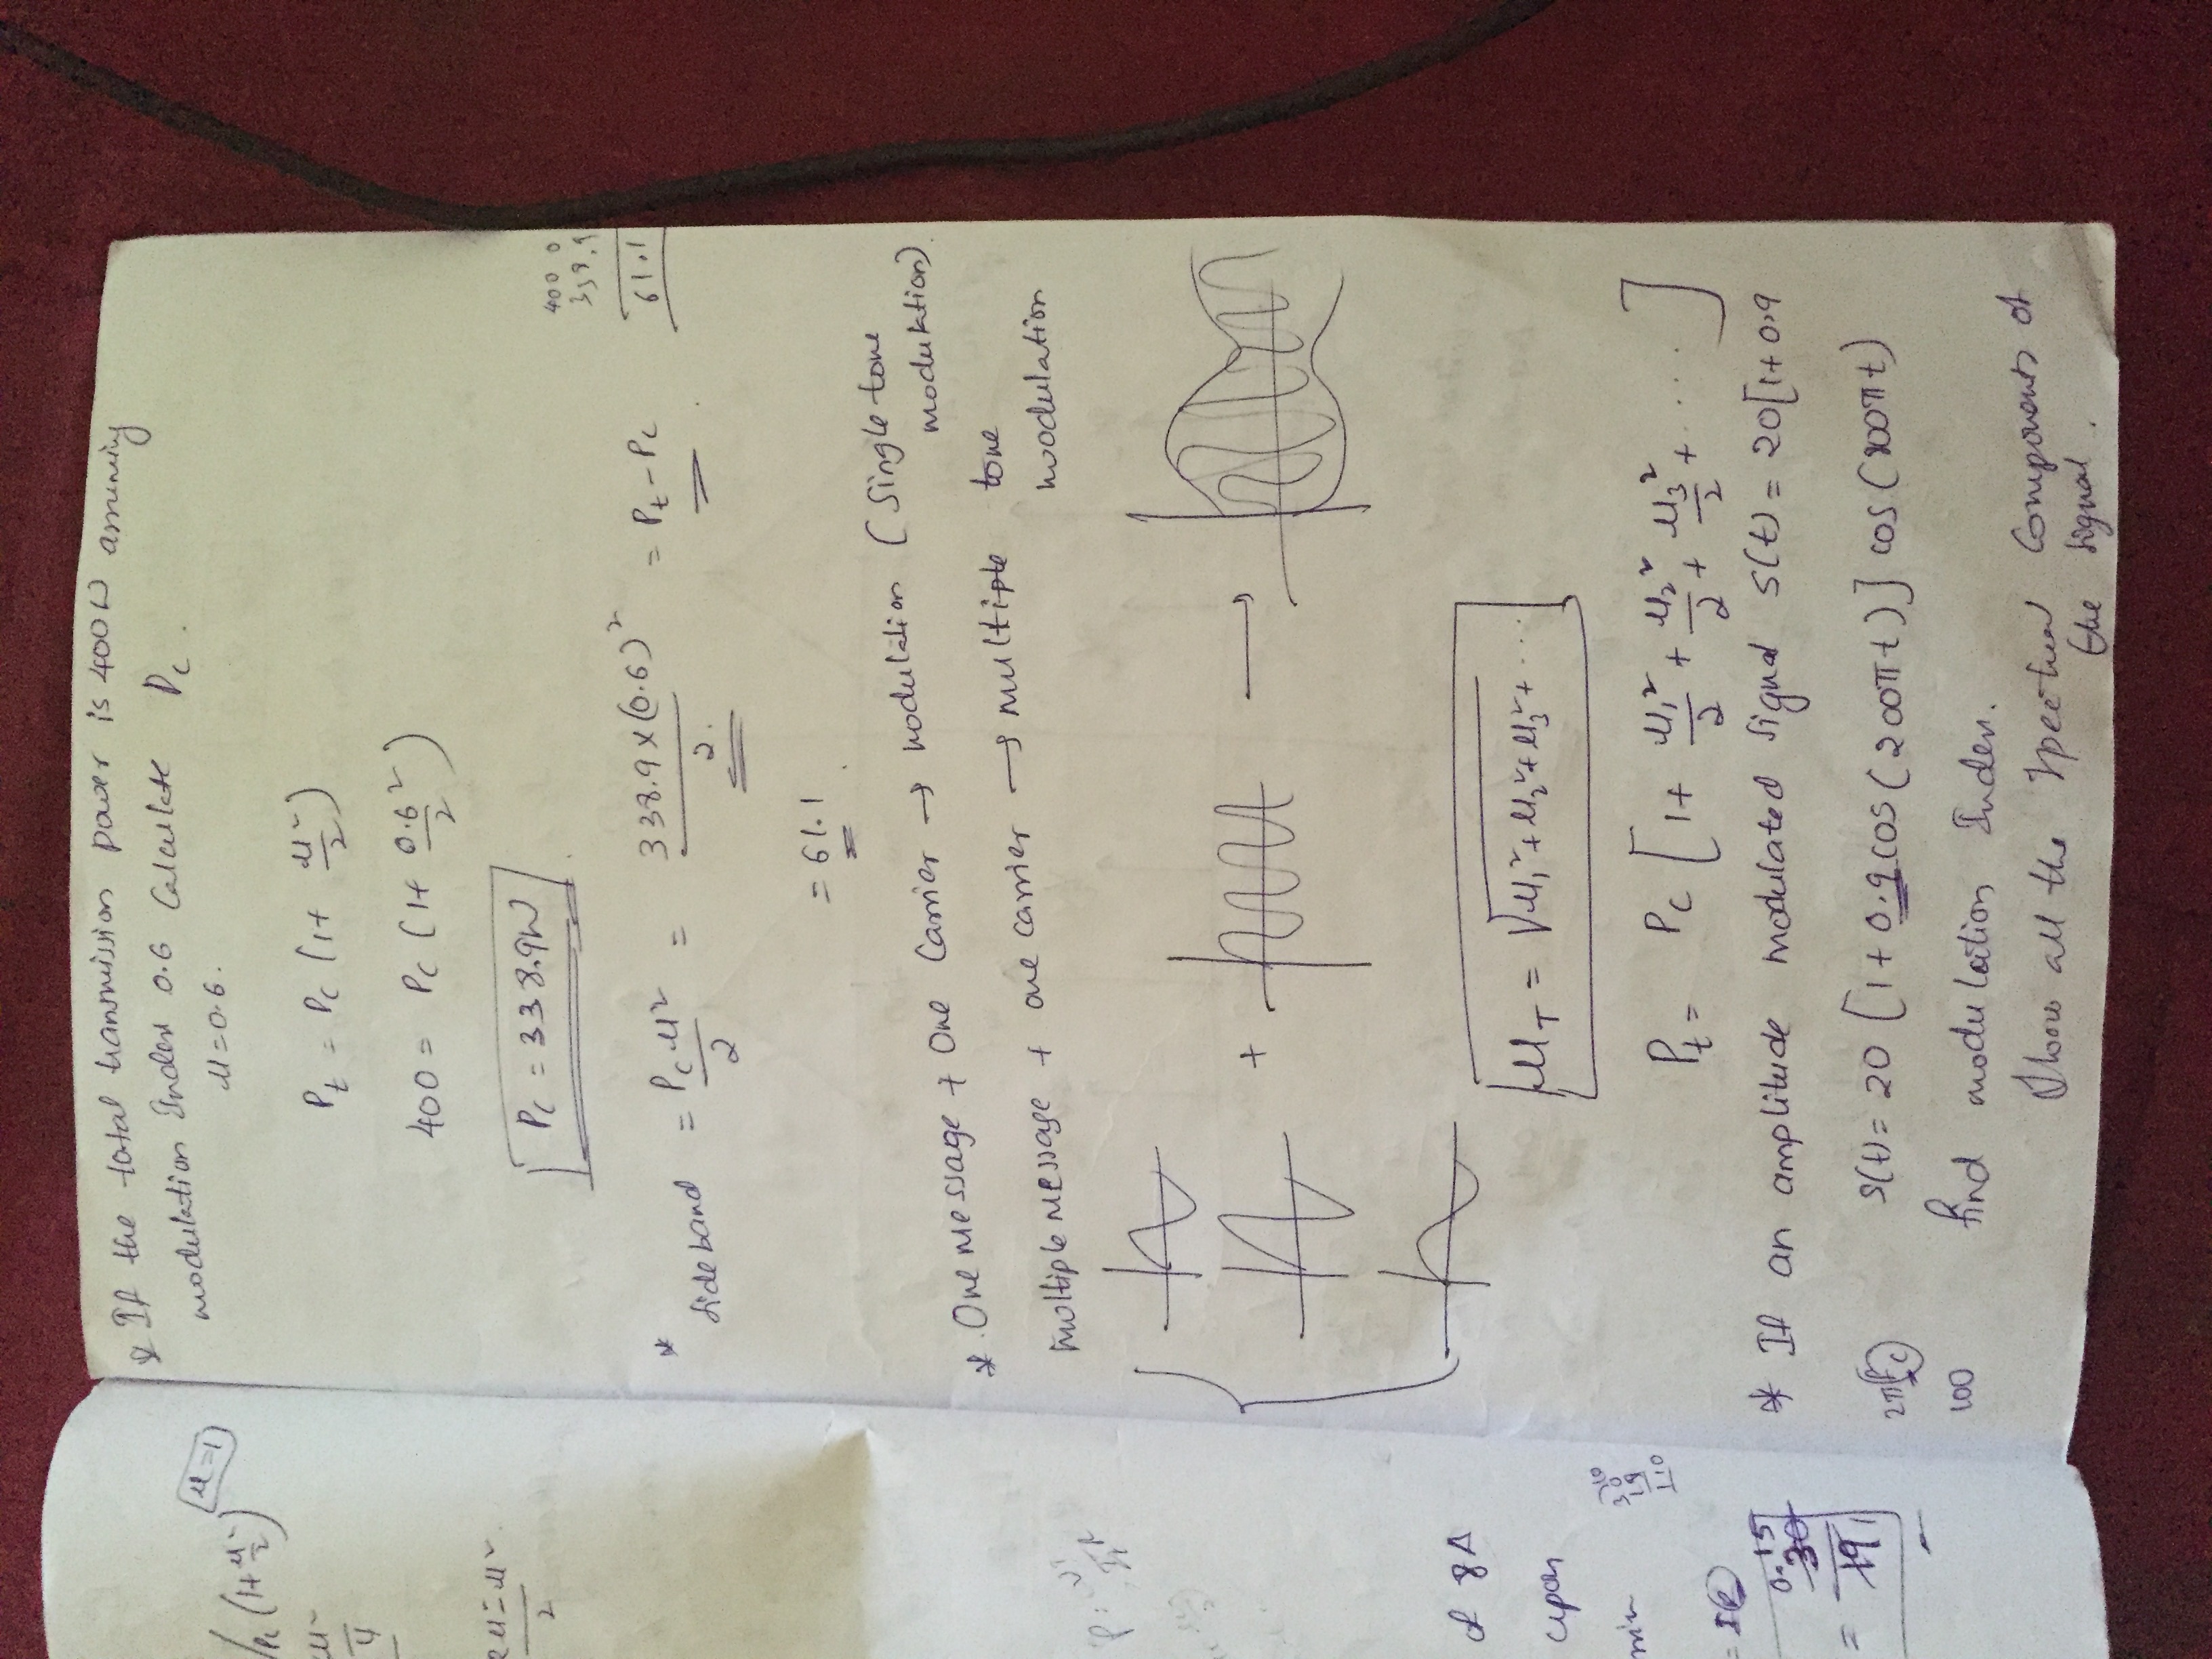 /Pc (1+ μ²/2) μ=1
μ²/4
2
of 8A
upon
0.15
30
= 19
* If the total transmission power is 400W assuming
modulation Index 0.6 Calculate Pc.
μ=0.6.
Pt = Pc (1+ μ²/2)
400 = Pc (1+ 0.6²/2)
Pc = 338.9W
400 0
338.9
61.1
* Sideband = Pc μ²/2 = 338.9×(0.6)²/2. = Pt-Pc.
= 61.1.
* One Message + One Carrier → modulation (Single tone
modulation).
Multiple Message + one carrier → multiple tone
modulation
+ →
μT = √μ1²+μ2²+μ3²+....
Pt = Pc [1+ μ1²/2 + μ2²/2 + μ3²/2 + .....]
* If an amplitude modulated signal s(t) = 20[1+0.9
s(t) = 20 [1+0.9cos(200πt)] cos(800πt)
2πfc
100
find modulation Index.
Show all the spectral Components of
the signal.